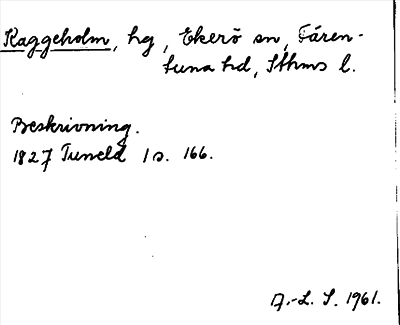 Kaggeholm, hg, Ekerö sn, Fären-
tuna hd, Sthms l.
Beskrivning.
1827 Tuneld 1 s. 166.
D.-L. S. 1961.